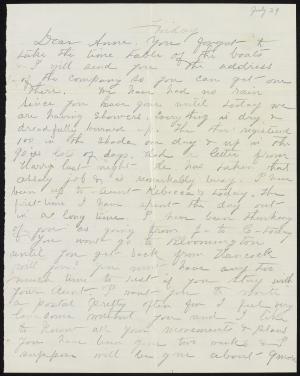 July 29
Friday
Dear Anne. You forgot to
take the time table of the boats
I will send you the address
of the company so you can get one
there. We have had no rain
since you have gone until today we
are having showers. Everything is dry &
dreadfully burned up. The ther. registered
100 in the shade one day & up in the
90ies lots of days. Had a letter from
Harry last night. He has taken that
Albany job & is remarkably busy. I have
been up to Aunt Rebecca's today. The
first time I have spent the day out
in a long time. I have been thinking
of you as going from to to-day
you would go to Bloomington
until you get back from Hancock
will you? you won't have any too
much time to rest if you stay with
your Aunt. I want you to write
a postal pretty often for I feel very
lonesome without you and I like
to know all your movements & plans
You have been gone two weeks & I
suppose will be gone about 4 more